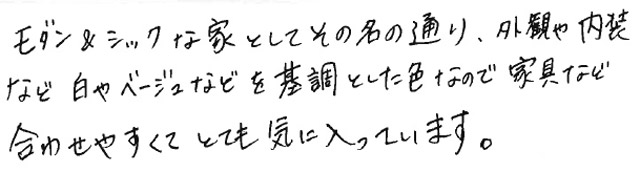 モダン&シックな家としてその名の通り、外観や内装
など白やベージュなどを基調とした色なので家具など
合わせやすくてとても気に入っています。